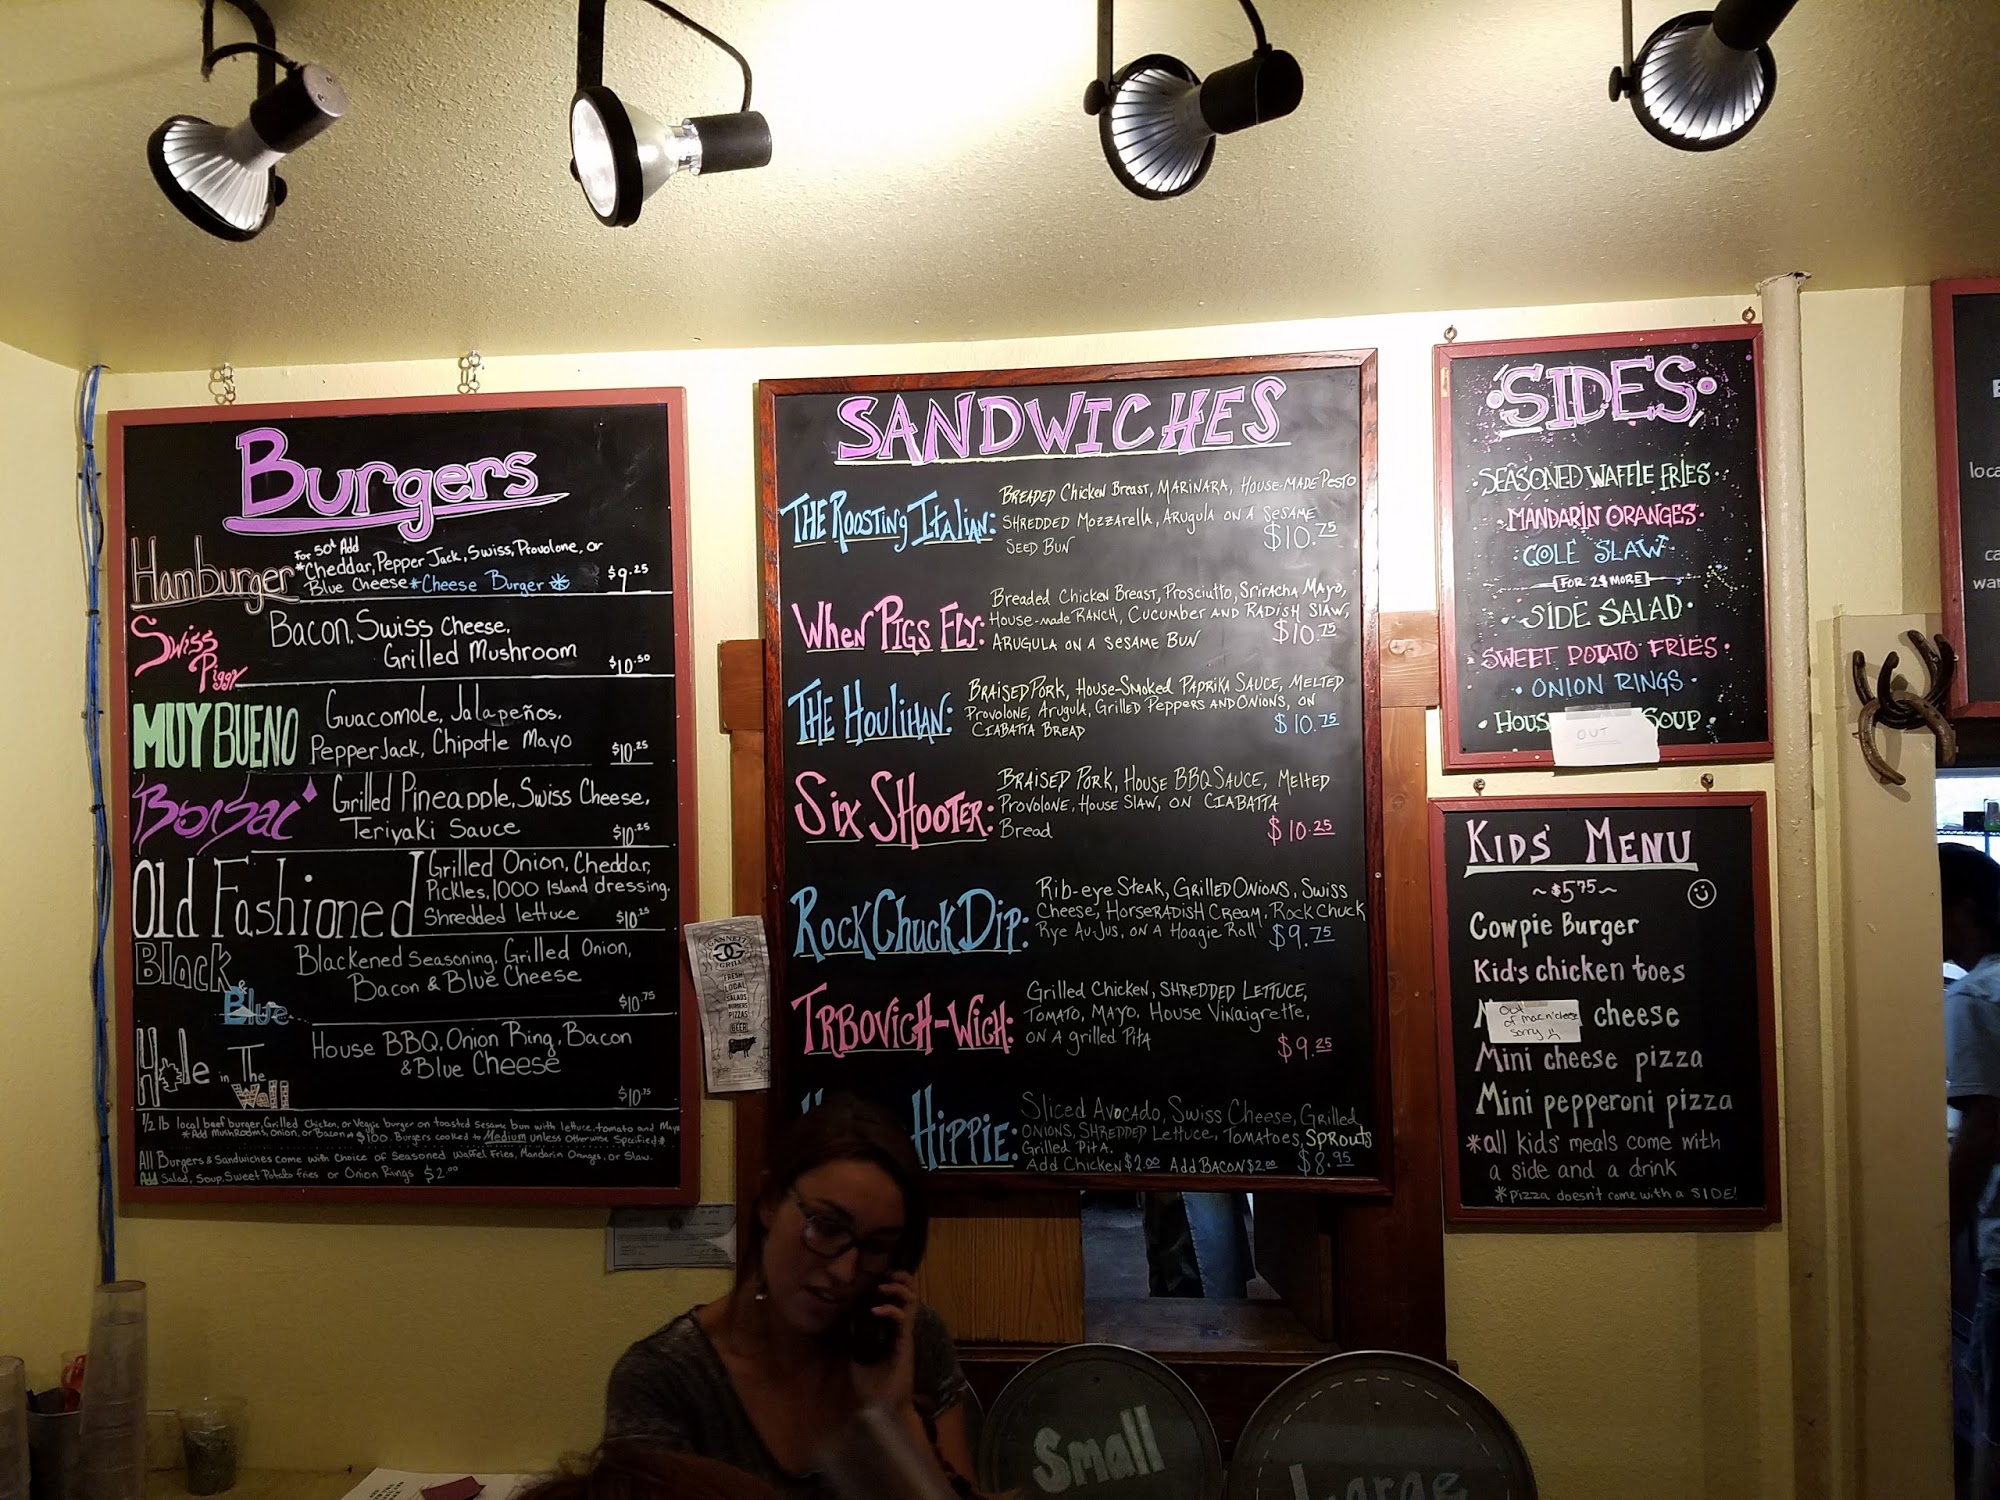 Burgers
Hamburger
For 50¢ Add
*Cheddar, Pepper Jack, Swiss, Provolone, or
Blue Cheese *Cheese Burger*
$9.25
Swiss
Piggy
Bacon, Swiss Cheese,
Grilled Mushroom
$10.50
MUY BUENO
Guacomole, Jalapeños,
Pepper Jack, Chipotle Mayo
$10.25
Grilled Pineapple, Swiss Cheese,
Teriyaki Sauce
$10.25
Old Fashioned
Grilled Onion, Cheddar,
Pickles, 1000 Island dressing,
Shredded lettuce
$10.25
Black &
Blue
Blackened Seasoning, Grilled Onion,
Bacon & Blue Cheese
$10.75
Hole in The
Wall
House BBQ, Onion Ring, Bacon
& Blue Cheese
$10.75
1/2 lb local beef burger, Grilled Chicken, or Veggie burger on toasted sesame bun with lettuce, tomato and Mayo
*Add Mushrooms, Onion, or Bacon $1.00. Burgers cooked to Medium unless otherwise specified*
All Burgers & Sandwiches come with choice of Seasoned Waffel Fries, Mandarin Oranges, or Slaw.
Add Salad, Soup, Sweet Potato fries or Onion Rings $2.00
SANDWICHES
THE ROOSTING ITALIAN:
BREADED CHICKEN BREAST, MARINARA, HOUSE-MADE PESTO
SHREDDED MOZZARELLA, ARUGULA ON A SESAME
SEED BUN
$10.75
WHEN PIGS FLY:
BREADED CHICKEN BREAST, PROSCIUTTO, SRIRACHA MAYO,
HOUSE-MADE RANCH, CUCUMBER AND RADISH SLAW,
ARUGULA ON A SESAME BUN
$10.75
THE HOULIHAN:
BRAISED PORK, HOUSE-SMOKED PAPRIKA SAUCE, MELTED
PROVOLONE, ARUGULA, GRILLED PEPPERS AND ONIONS, ON
CIABATTA BREAD
$10.75
SIX SHOOTER:
BRAISED PORK, HOUSE BBQ SAUCE, MELTED
PROVOLONE, HOUSE SLAW, ON CIABATTA
Bread
$10.25
ROCK CHUCK DIP:
RIB-EYE STEAK, GRILLED ONIONS, SWISS
CHEESE, HORSERADISH CREAM, ROCK CHUCK
RYE AU-JUS, ON A HOAGIE ROLL
$9.75
TRBOVICH-WICH:
Grilled Chicken, SHREDDED LETTUCE,
TOMATO, MAYO, House Vinaigrette,
ON A grilled Pita
$9.25
HIPPIE:
Sliced Avocado, Swiss Cheese, Grilled
ONIONS, SHREDDED LETTUCE, TOMATOES, SPROUTS
Grilled PITA.
Add Chicken $2.00 Add BACON $2.00
$8.95
SIDES
SEASONED WAFFLE FRIES
MANDARIN ORANGES
COLE SLAW
FOR 2$ MORE
SIDE SALAD
SWEET POTATO FRIES
ONION RINGS
HOUS SOUP
OUT
KIDS' MENU
~$5.75~
Cowpie Burger
Kid's chicken toes
M cheese
Out
of mac n' cheese
sorry
Mini cheese pizza
Mini pepperoni pizza
*all kids' meals come with
a side and a drink
*pizza doesn't come with a SIDE!
GANNETT
GRILL
FRESH
LOCAL
SALADS
BURGERS
PIZZAS
BEER
Small
Large